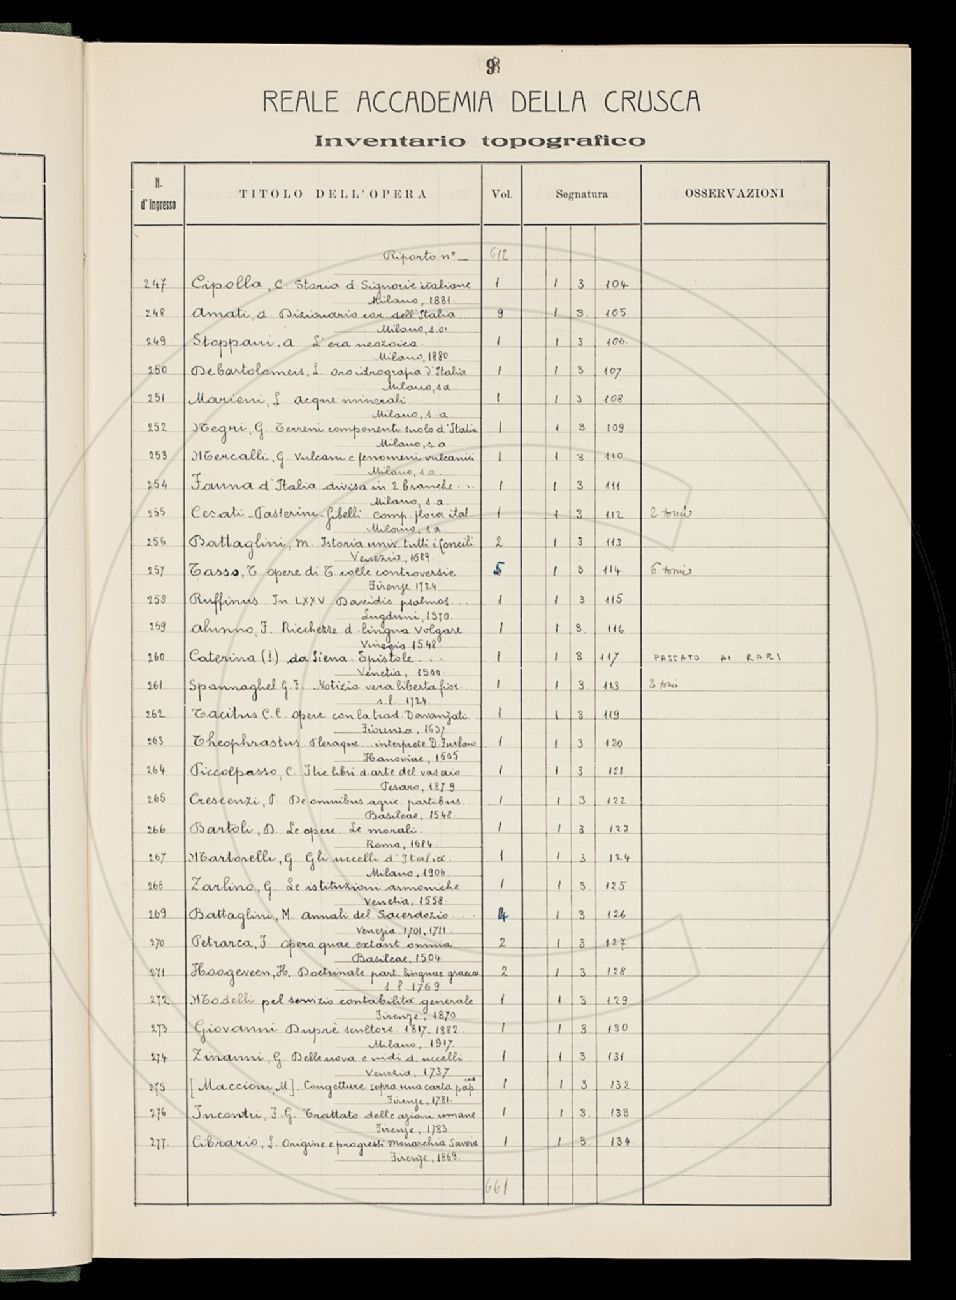 9
REALE ACCADEMIA DELLA CRUSCA
Inventario topografico
N. d'Ingresso TITOLO DELL'OPERA Vol. Segnatura OSSERVAZIONI
Riporto nº 612
247 Cipolla, C. Storia d Signorie italiane 1 1 3 104
Milano, 1881
248 Amati, A Dizionario cor. dell'Italia 9 1 3 105
Milano, s.a.
249 Stoppani, A L'era neozoica 1 1 3 106
Milano, 1880
250 Debartolomeis, L. oroidrografia d'Italia 1 1 3 107
Milano, s a
251 Marieni, L acque minerali 1 1 3 108
Milano, s. a
252 Negri, G. Terreni componenti suolo d'Italia 1 1 3 109
Milano, s. a
253 Mercalli, G. Vulcani e fenomeni vulcanici 1 1 3 110
Milano, s a
254 Fauna d'Italia divisa in 2 branche... 1 1 3 111
Milano, s. a
255 Cesati-Passerini-Gibelli comp. flora ital. 1 1 3 112 2 tomi
Milano, s a
256 Battaglini, M. Istoria univ. tutti i Concili 2 1 3 113
Venezia, 1689
257 Tasso, T opere di T. colle controversie 5 1 3 114 6 tomi
Firenze 1724
258 Ruffinus In LXXV Davidis psalmos... 1 1 3 115
Lugduni, 1570
259 Alunno, F. Ricchezze d. lingua Volgare 1 1 3 116
Vinegia 1548
260 Caterina (S) da Siena. Epistole... 1 1 3 117 PASSATO AI RARI
Venetia, 1500
261 Spannaghel G.F. Notizia vera libertà fior. 1 1 3 118 2 tomi
s.l. 1724
262 Tacitus C.C. opere con la trad. Davanzati 1 1 3 119
Fiorenza, 1637
263 Theophrastus Pleraque... interprete D. Furlano 1 1 3 120
Hanoviae, 1605
264 Piccolpasso, C. I tre libri d. arte del vasaio 1 1 3 121
Pesaro, 1879
265 Crescenzi, P. De omnibus agric. partibus 1 1 3 122
Basileae, 1548
266 Bartoli, D. Le opere. Le morali. 1 1 3 123
Roma, 1684
267 Martorelli, G Gli uccelli d'Italia 1 1 3 124
Milano, 1906
268 Zarlino, G. Le istituzioni armoniche 1 1 3 125
Venetia, 1558
269 Battaglini, M. Annali del Sacerdozio... 4 1 3 126
Venezia 1701, 1711
270 Petrarca, F opera quae extant omnia 2 1 3 127
Basileae, 1504
271 Hoogeveen, H. Doctrinale part. linguae graeca 2 1 3 128
s. l. 1769
272 Modelli pel servizio contabilità generale 1 1 3 129
Firenze, 1870
273 Giovanni Duprè scultore. 1817-1882 1 1 3 130
Milano, 1917
274 Zinanni, G. Delle uova e nidi d. uccelli 1 1 3 131
Venezia, 1737
275 [Maccioni, M]. Congetture sopra una carta pap. 1 1 3 132
Firenze, 1781
276 Incontri, F.G. Trattato delle azioni umane 1 1 3 133
Firenze, 1783
277 Cibrario, L. Origine e progressi Monarchia Savoia 1 1 3 134
Firenze, 1869
661